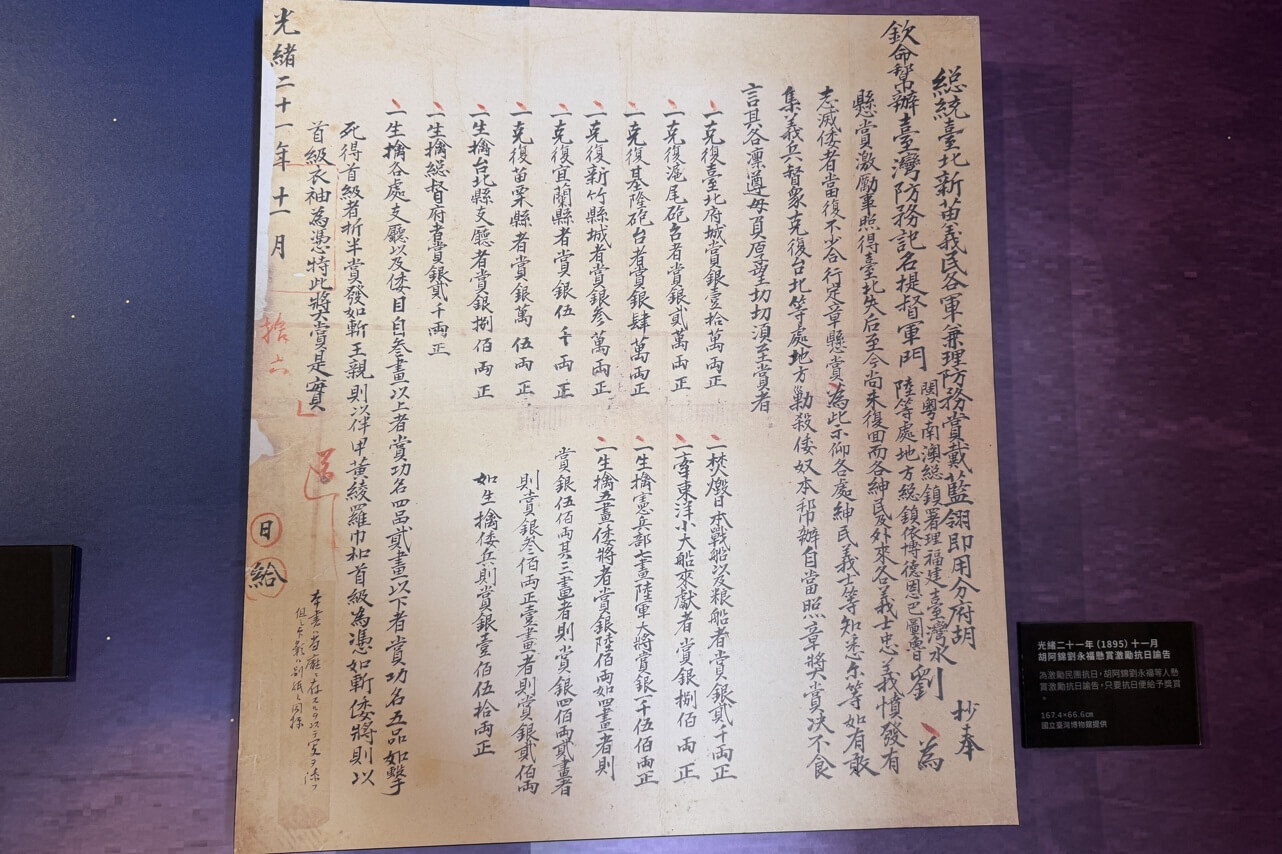 総統臺北新苗義民各軍兼理防務賞戴藍翎即用分府胡 抄奉
欽命幫辦臺灣防務記名提督軍門
閩粵南澳総鎮署理福建臺灣水
陸等處地方総鎮依博德恩巴圖魯
劉 為
懸賞激勵軍照得臺北失后至今尚未復回而各紳民及外來各義士忠義憤發有
志滅倭者當復不少合行是章懸賞為此示仰各處紳民義士等知悉尔等如有敢
集義兵督衆克復台北等處地方勦殺倭奴本幇辦自當照章將賞决不食
言其各凛遵毋負厚望切切須至賞者
一克復臺北府城賞銀壹拾萬両正
一克復滬尾砲台者賞銀貳萬両正
一克復基隆砲台者賞銀肆萬両正
一克復新竹縣城者賞銀參萬両正
一克復宜蘭縣者賞銀伍千両正
一克復苗栗縣者賞銀萬伍両正
一生擒台北縣支廳者賞銀捌佰両正
一生擒総督府者賞銀貳千両正
一焚燬日本戰船以及粮船者賞銀貳千両正
一牽東洋小大船來獻者賞銀捌佰両正
一生擒憲兵部七畫陸軍大將賞銀千伍佰両正
一生擒五畫倭將者賞銀陸佰両如四畫者則
賞銀伍佰両其三畫者則賞銀四佰両貳畫者
則賞銀叁佰両正壹畫者則賞銀貳佰両
如生擒倭兵則賞銀壹佰伍拾両正
一生擒各處支廳以及倭目自叁畫以上者賞功名四品貳畫以下者賞功名五品如擊
死得首級者折半賞發如斬王親則以伴甲黃綾羅巾和首級為憑如斬倭將則以
首級衣袖為憑特此將賞是實
光緒二十一年十一月 拾六 日給
光緒二十一年（1895）十一月
胡阿錦劉永福懸賞激勵抗日諭告
為激勵民團抗日，胡阿錦劉永福等人懸
賞激勵抗日諭告，只要抗日便給予獎賞
。
167.4×66.6cm
國立臺灣博物館提供